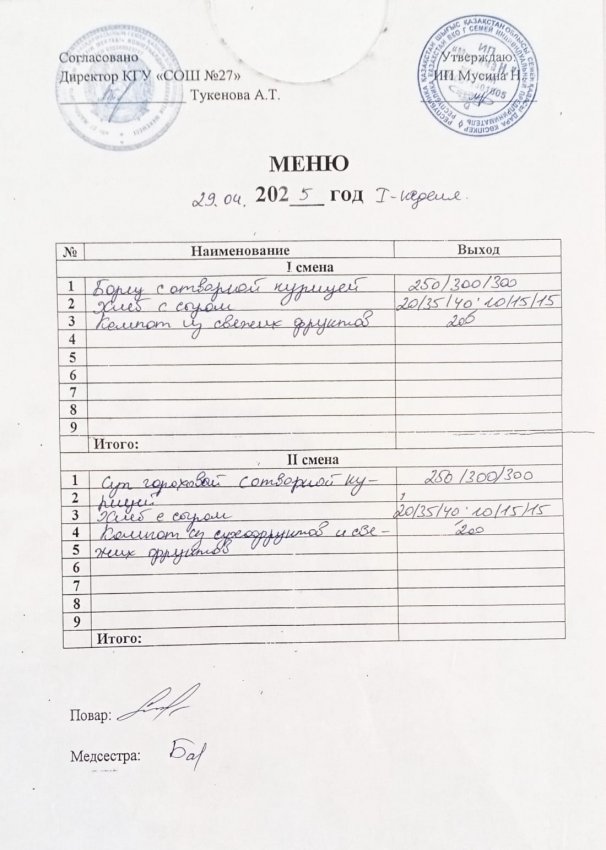 Согласовано
Директор КГУ «СОШ №27»
Тукенова А.Т.
Утверждаю:
ИП Мусина Н
МЕНЮ
29.04. 2025 год I-неделя.
№ Наименование Выход
I смена
1 Борщ с отварной курицей 250/300/300
2 Хлеб с сыром 20/35/40·10/15/15
3 Компот из свежих фруктов 200
4
5
6
7
8
9
Итого:
II смена
1 Суп гороховый с отварной ку- 250/300/300
2 рицей
3 Хлеб с сыром 20/35/40·10/15/15
4 Компот из сухофруктов и све- 200
5 жих фруктов
6
7
8
9
Итого:
Повар:
Медсестра: